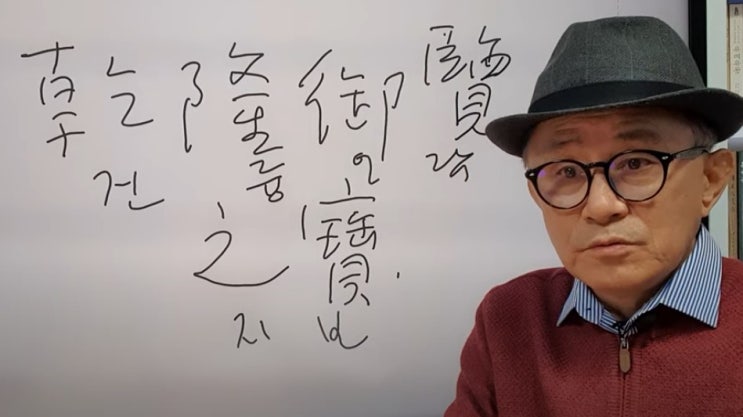 乾隆御覽
건륭어람
之寶
지보